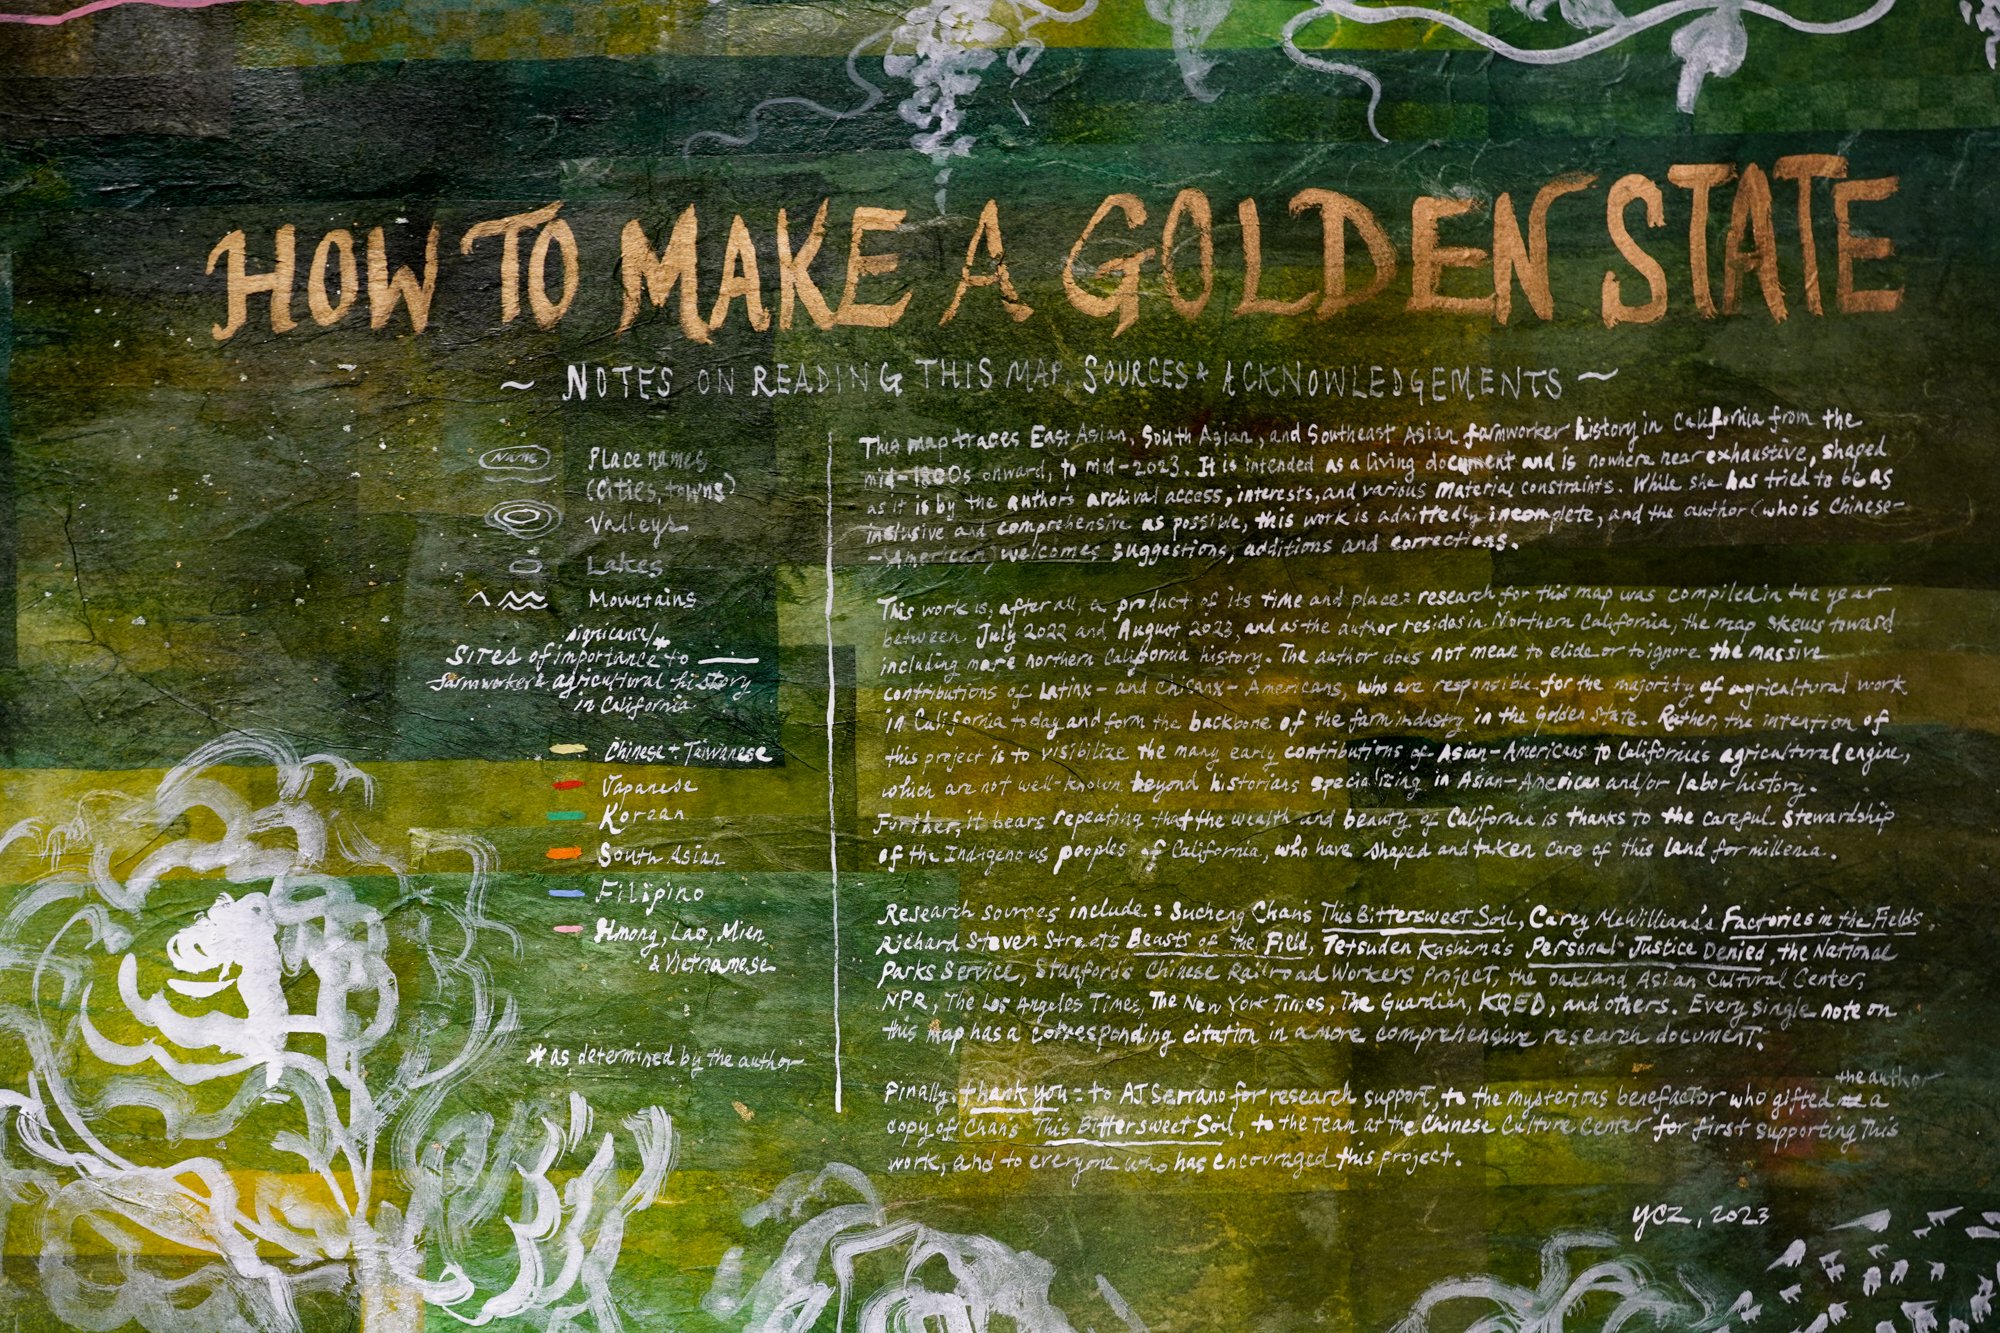 HOW TO MAKE A GOLDEN STATE
~ NOTES ON READING THIS MAP, SOURCES & ACKNOWLEDGEMENTS ~
NAME
Place names
(cities, towns)
Valleys
Lakes
Mountains
significance/
SITES of importance to
farmworker & agricultural history
in California
Chinese + Taiwanese
Japanese
Korean
South Asian
Filipino
Hmong, Lao, Mien
& Vietnamese
*as determined by the author
This map traces East Asian, South Asian, and Southeast Asian farmworker history in California from the
mid-1800s onward, to mid-2023. It is intended as a living document and is nowhere near exhaustive, shaped
as it is by the author's archival access, interests, and various material constraints. While she has tried to be as
inclusive and comprehensive as possible, this work is admittedly incomplete, and the author (who is Chinese-
-American) welcomes suggestions, additions and corrections.
This work is, after all, a product of its time and place: research for this map was compiled in the year
between July 2022 and August 2023, and as the author resides in Northern California, the map skews toward
including more northern California history. The author does not mean to elide or to ignore the massive
contributions of Latinx- and Chicanx-Americans, who are responsible for the majority of agricultural work
in California today and form the backbone of the farm industry in the Golden State. Rather, the intention of
this project is to visibilize the many early contributions of Asian-Americans to California's agricultural engine,
which are not well-known beyond historians specializing in Asian-American and/or labor history.
Further, it bears repeating that the wealth and beauty of California is thanks to the careful stewardship
of the Indigenous peoples of California, who have shaped and taken care of this land for millenia.
Research sources include: Sucheng Chan's This Bittersweet Soil, Carey McWilliams's Factories in the Fields,
Richard Steven Street's Beasts of the Field, Tetsuden Kashima's Personal Justice Denied, the National
Parks Service, Stanford's Chinese Railroad Workers Project, the Oakland Asian Cultural Center,
NPR, The Los Angeles Times, The New York Times, The Guardian, KQED, and others. Every single note on
this map has a corresponding citation in a more comprehensive research document.
the author
Finally, thank you: to AJ Serrano for research support, to the mysterious benefactor who gifted a
copy of Chan's This Bittersweet Soil, to the team at the Chinese Culture Center for first supporting this
work, and to everyone who has encouraged this project.
YCZ, 2023